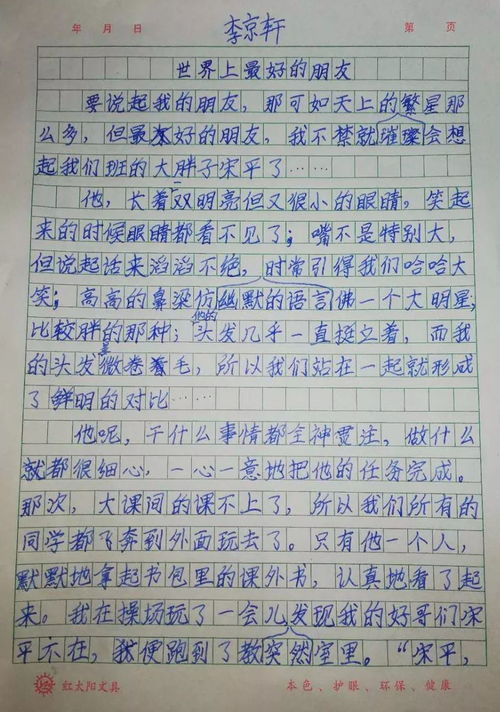 年 月 日 李京轩 第 页
世界上最好的朋友
要说起我的朋友，那可如天上的繁星那
么多，但最好的朋友，我不禁就会想
璀璨
起我们班的大胖子宋平了……
他，长着双明亮但又很小的眼睛，笑起
一
来的时候眼睛都看不见了；嘴不是特别大，
但说起话来滔滔不绝，时常引得我们哈哈大
笑；高高的鼻梁仿佛一个大明星；
幽默的语言
比较胖的那种；头发几乎一直挺立着，而我
他的
的头发微卷毛，所以我们站在一起就形成
了鲜明的对比……
他呢，干什么事情都全神贯注，做什么
就都很细心，一心一意地把他的任务完成。
那次，大课间的课不上了，所以我们所有的
同学都飞奔到外面玩去了。只有他一个人，
默默地拿起书包里的课外书，认真地看了起
来。我在操场玩了一会儿发现我的好哥们宋
平不在，我便跑到了教室里。“宋平，
突然
红太阳文具 本色、护眼、环保、健康